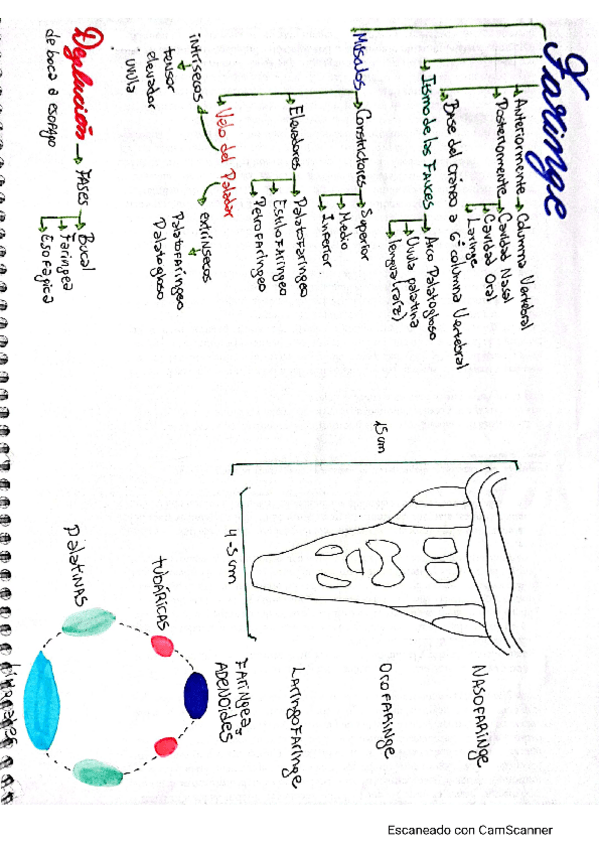 Faringe
Anteriormente → Columna Vertebral
Posteriormente → Cavidad Nasal
Cavidad Oral
Laringe
Base del cráneo a 6° columna Vertebral
Istmo de las Fauces → Arco Palatogloso
Uvula palatina
lengua (raíz)
Músculos → Constrictores → Superior
Medio
Inferior
Elevadores → Palatofaríngeo
Estilofaríngeo
Petrofaríngeo
Velo del Paladar
intrísecos
tensor
elevador
úvula
extrínsecos
Palatofaríngeo
Palatogloso
Deglución → FASES → Bucal
de boca a esofago
Faríngea
Esofágica
15 cm
4-5 cm
NASOFARINGE
OROFARINGE
LARINGOFARINGE
FARÍNGEA
ADENOIDES
TUBÁRICAS
PALATINAS
Escaneado con CamScanner